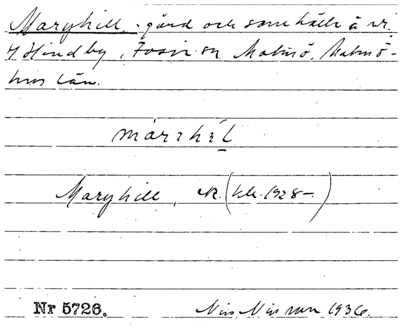 Maryhill, gård och samhälle å nr.
4 Hindby, Fosie sn, Malmö, Malmö-
hus län.
Maryhill, (kh. 1928-)
Nr 5726.
Nils Nilsson 1936.